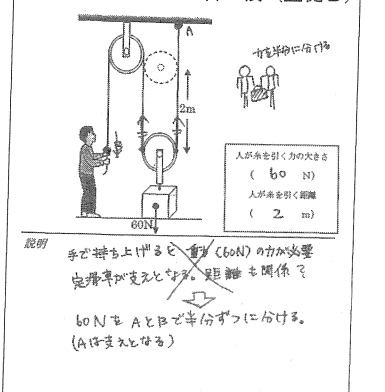 A
力を半分に分ける
2m
人が糸を引く力の大きさ
( 60 N)
人が糸を引く距離
( 2 m)
60N
説明
手で持ち上げると 重力(60N)の力が必要
定滑車が支えとなる。距離も関係て
60NをAとBで半分ずつに分ける。
(Aは支えとなる)